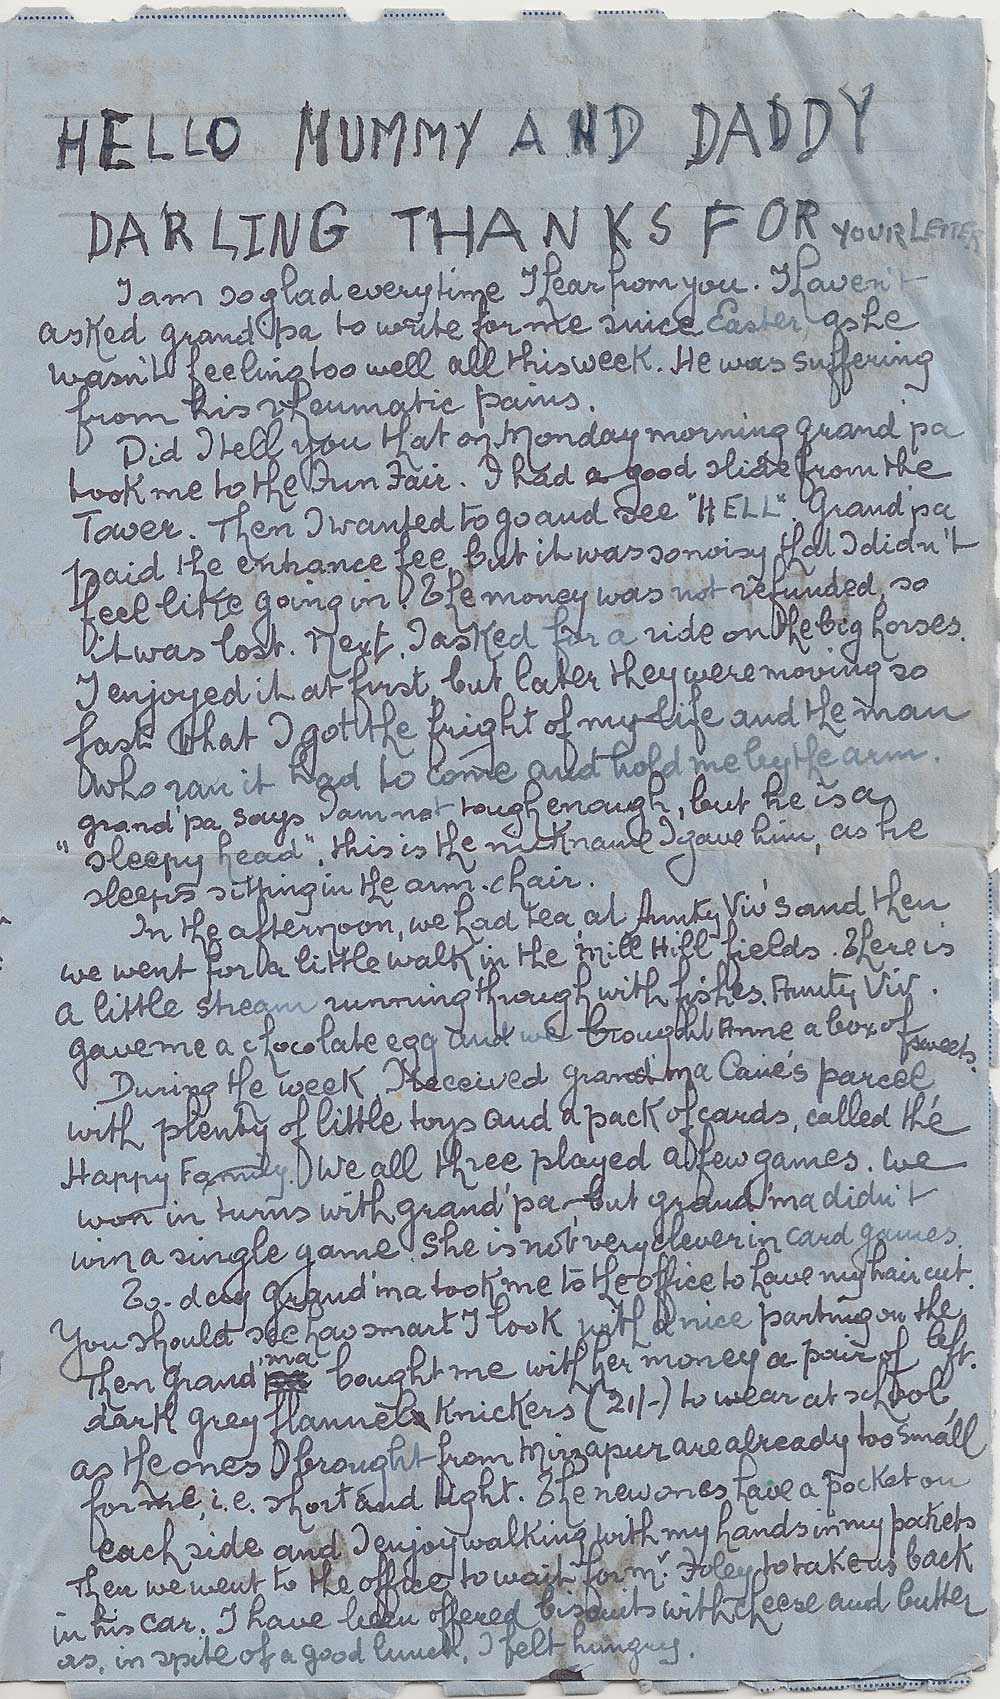 HELLO MUMMY AND DADDY
DARLING THANKS FOR YOUR LETTER
I am so glad everytime I hear from you. I haven't
asked grand'pa to write for me since Easter, as he
wasn't feeling too well all this week. He was suffering
from his rheumatic pains.
Did I tell you that on Monday morning grand'pa
took me to the Fun Fair. I had a good slide from the
Tower. Then I wanted to go and see "HELL". Grand'pa
paid the entrance fee, but it was so noisy that I didn't
feel like going in. The money was not refunded, so
it was lost. Next, I asked for a ride on the big horses.
I enjoyed it at first, but later they were moving so
fast that I got the fright of my life and the man
who ran it had to come and hold me by the arm.
grand'pa says I am not tough enough, but he is a
"sleepy head", this is the nickname I gave him, as he
sleeps sitting in the arm-chair.
In the afternoon, we had tea at Aunty Viv's and then
we went for a little walk in the Mill Hill fields. There is
a little stream running through with fishes. Aunty Viv.
gave me a chocolate egg and we brought Anne a box of sweets.
During the week, I received grand'ma Cane's parcel
with plenty of little toys and a pack of cards, called the
Happy Family. We all three played a few games. We
won in turns with grand'pa, but grand'ma didn't
win a single game. She is not very clever in card games.
To-day Grand'ma took me to the office to have my hair cut.
You should see how smart I look with a nice parting on the left.
Then Grand'ma bought me with her money a pair of
dark grey flannel knickers (21/-) to wear at school,
as the ones I brought from Mirzapur are already too small
for me, i.e. short and tight. The new ones have a pocket on
each side and I enjoy walking with my hands in my pockets
Then we went to the office to wait for Mr. Foley to take us back
in his car. I have been offered biscuits with cheese and butter
as, in spite of a good lunch, I felt hungry.